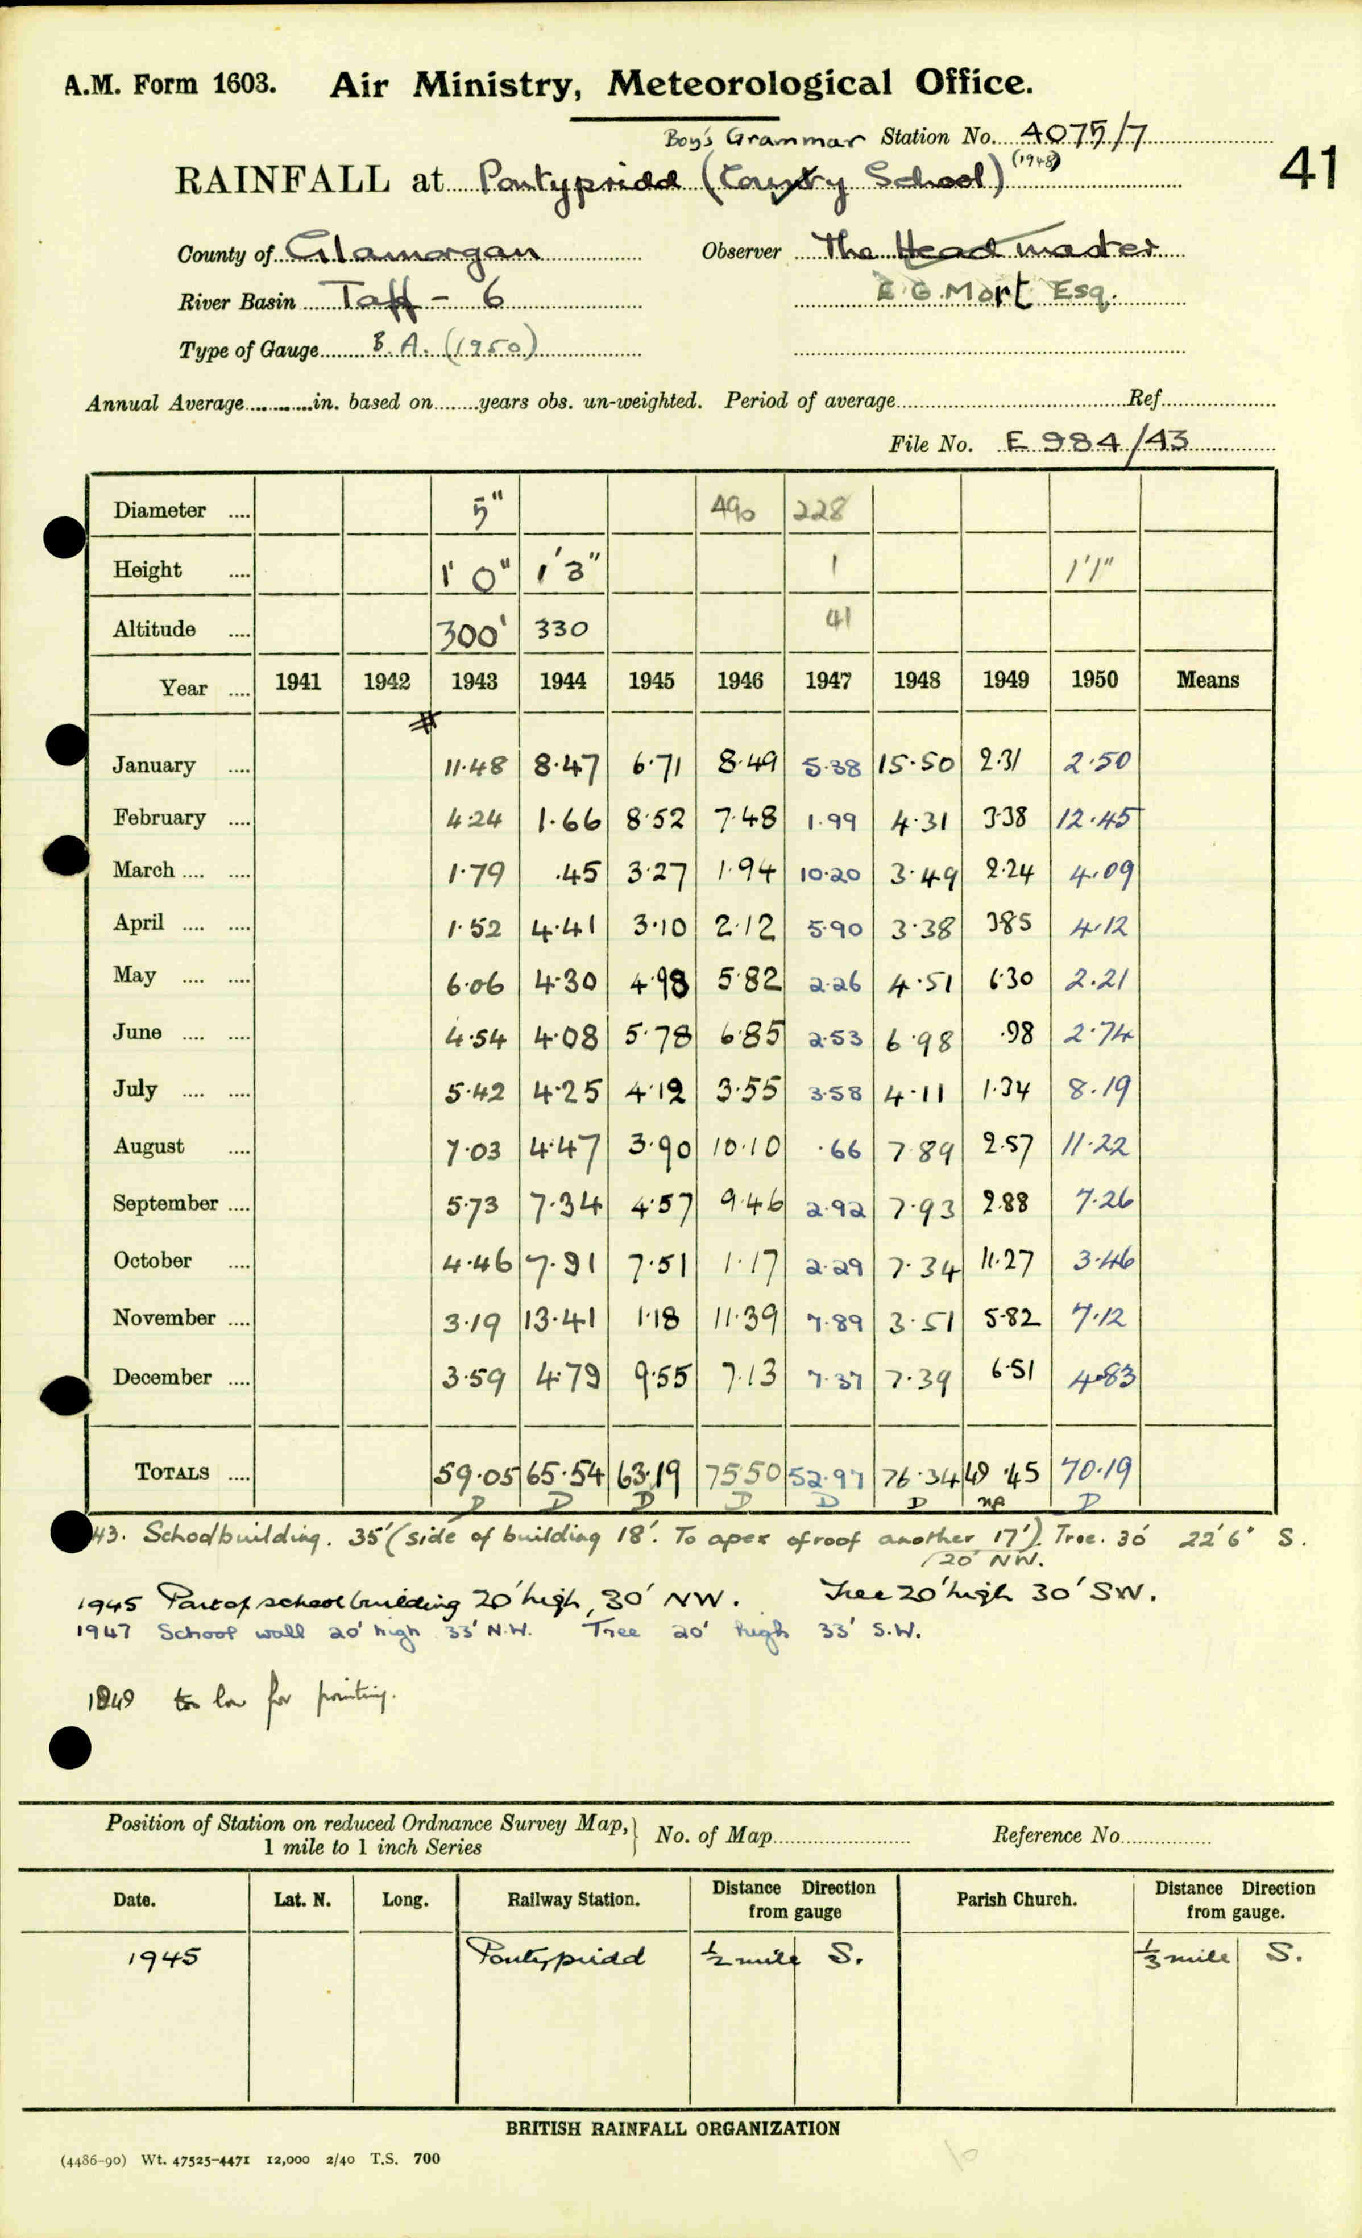 A.M. Form 1603. Air Ministry, Meteorological Office.
Boy's Grammar Station No. 4075/7
RAINFALL at Pontypridd (County School) (1948)
41
County of Glamorgan Observer The Head master
River Basin Taff - 6 E G. Mort Esq.
Type of Gauge B. A. (1950)
Annual Average............in. based on........years obs. un-weighted. Period of average Ref.
File No. E 984/43
Diameter .... 5" 490 228
Height .... 1' 0" 1'3" 1 1'1"
Altitude .... 300' 330 41
Year .... 1941 1942 1943 1944 1945 1946 1947 1948 1949 1950 Means
#
January .... 11.48 8.47 6.71 8.49 5.38 15.50 2.31 2.50
February .... 4.24 1.66 8.52 7.48 1.99 4.31 3.38 12.45
March .... .... 1.79 .45 3.27 1.94 10.20 3.49 2.24 4.09
April .... .... 1.52 4.41 3.10 2.12 5.90 3.38 3.85 4.12
May .... .... 6.06 4.30 4.98 5.82 2.26 4.51 6.30 2.21
June .... .... 4.54 4.08 5.78 6.85 2.53 6.98 .98 2.74
July .... .... 5.42 4.25 4.12 3.55 3.58 4.11 1.34 8.19
August .... 7.03 4.47 3.90 10.10 .66 7.89 2.57 11.22
September .... 5.73 7.34 4.57 9.46 2.92 7.93 2.88 7.26
October .... 4.46 7.91 7.51 1.17 2.29 7.34 11.27 3.46
November .... 3.19 13.41 1.18 11.39 7.89 3.51 5.82 7.12
December .... 3.59 4.79 9.55 7.13 7.37 7.39 6.51 4.83
TOTALS .... 59.05 65.54 63.19 75.50 52.97 76.34 49.45 70.19
D D D D D D np D
43. School building. 35' (side of building 18'. To apex of roof another 17'). Tree. 30' 22'6" S.
(20' NW.
1945 Part of school building 20' high, 30' NW. Tree 20' high 30' SW.
1947 School wall 20' high 33' N.W. Tree 20' high 33' S.W.
1949 too low for printing.
Position of Station on reduced Ordnance Survey Map, } No. of Map Reference No.
1 mile to 1 inch Series
Date. Lat. N. Long. Railway Station. Distance Direction from gauge Parish Church. Distance Direction from gauge.
1945 Pontypridd ½ mile S. ⅓ mile S.
BRITISH RAINFALL ORGANIZATION
(4486-90) Wt. 47525-4471 12,000 2/40 T.S. 700
10